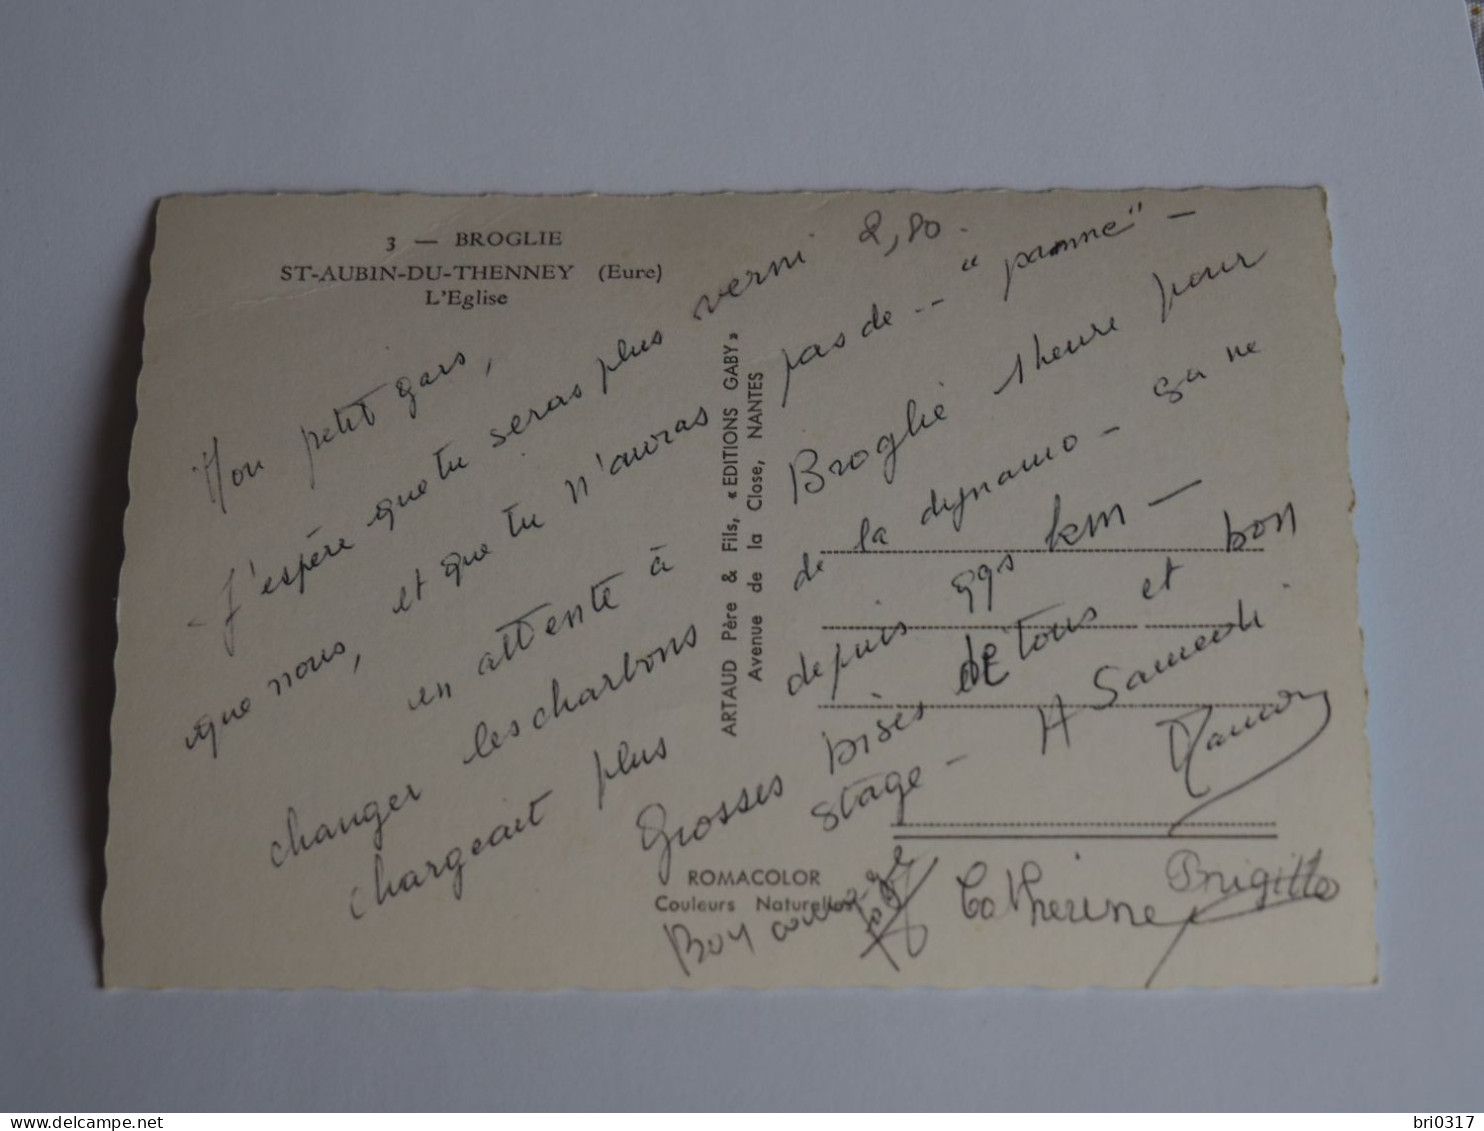 3 — BROGLIE
ST-AUBIN-DU-THENNEY (Eure)
L'Eglise
2,80.
Mon petit gars,
- J'espère que tu seras plus verni
que nous, et que tu n'auras pas de -- "panne" -
en attente à Broglie 1 heure pour
changer les charbons de la dynamo - ça ne
chargeait plus depuis 995 km -
Grosses bises de tous et bon
stage - A Samedi.
Maman
ARTAUD Père & Fils, « EDITIONS GABY »
Avenue de la Close, NANTES
ROMACOLOR
Couleurs Naturelles
Bon courage
Catherine
Brigitte
bri0317